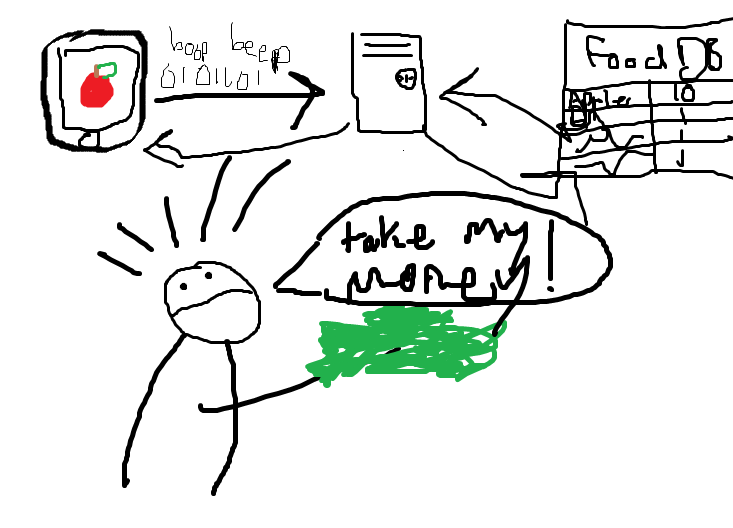 boop beep
0101101
Food DB
Apples 10
1
1
take my
money!